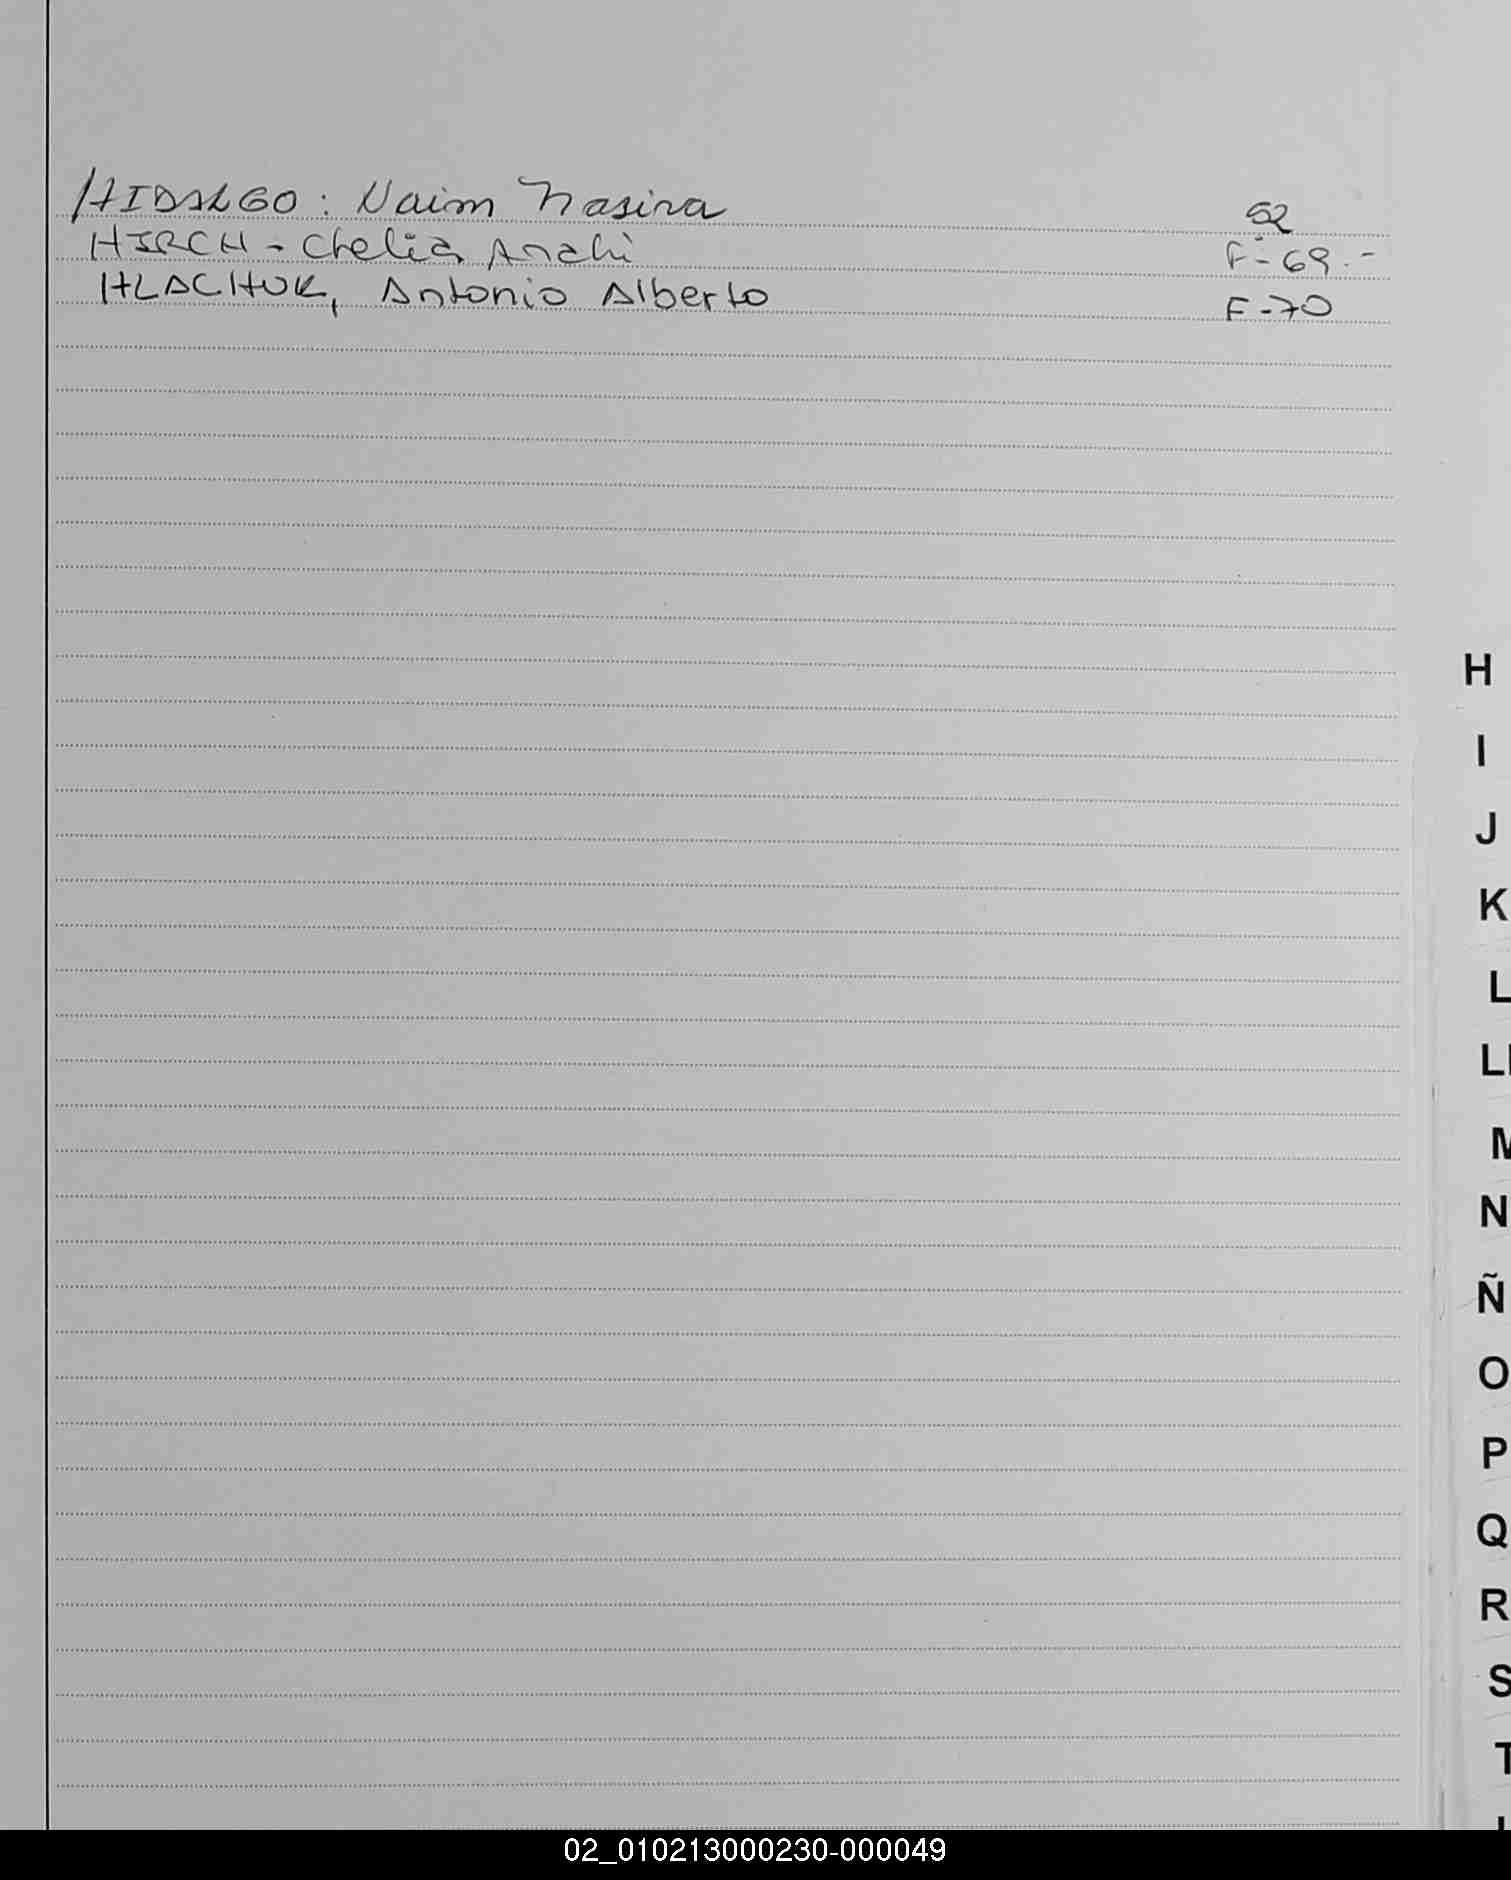 HIDALGO: Naim Nasira 52
HIRCH - Chelia Anahi F-69.-
HLACHUK, Antonio Alberto F-70
H
I
J
K
L
Ll
M
N
Ñ
O
P
Q
R
S
T
02_010213000230-000049